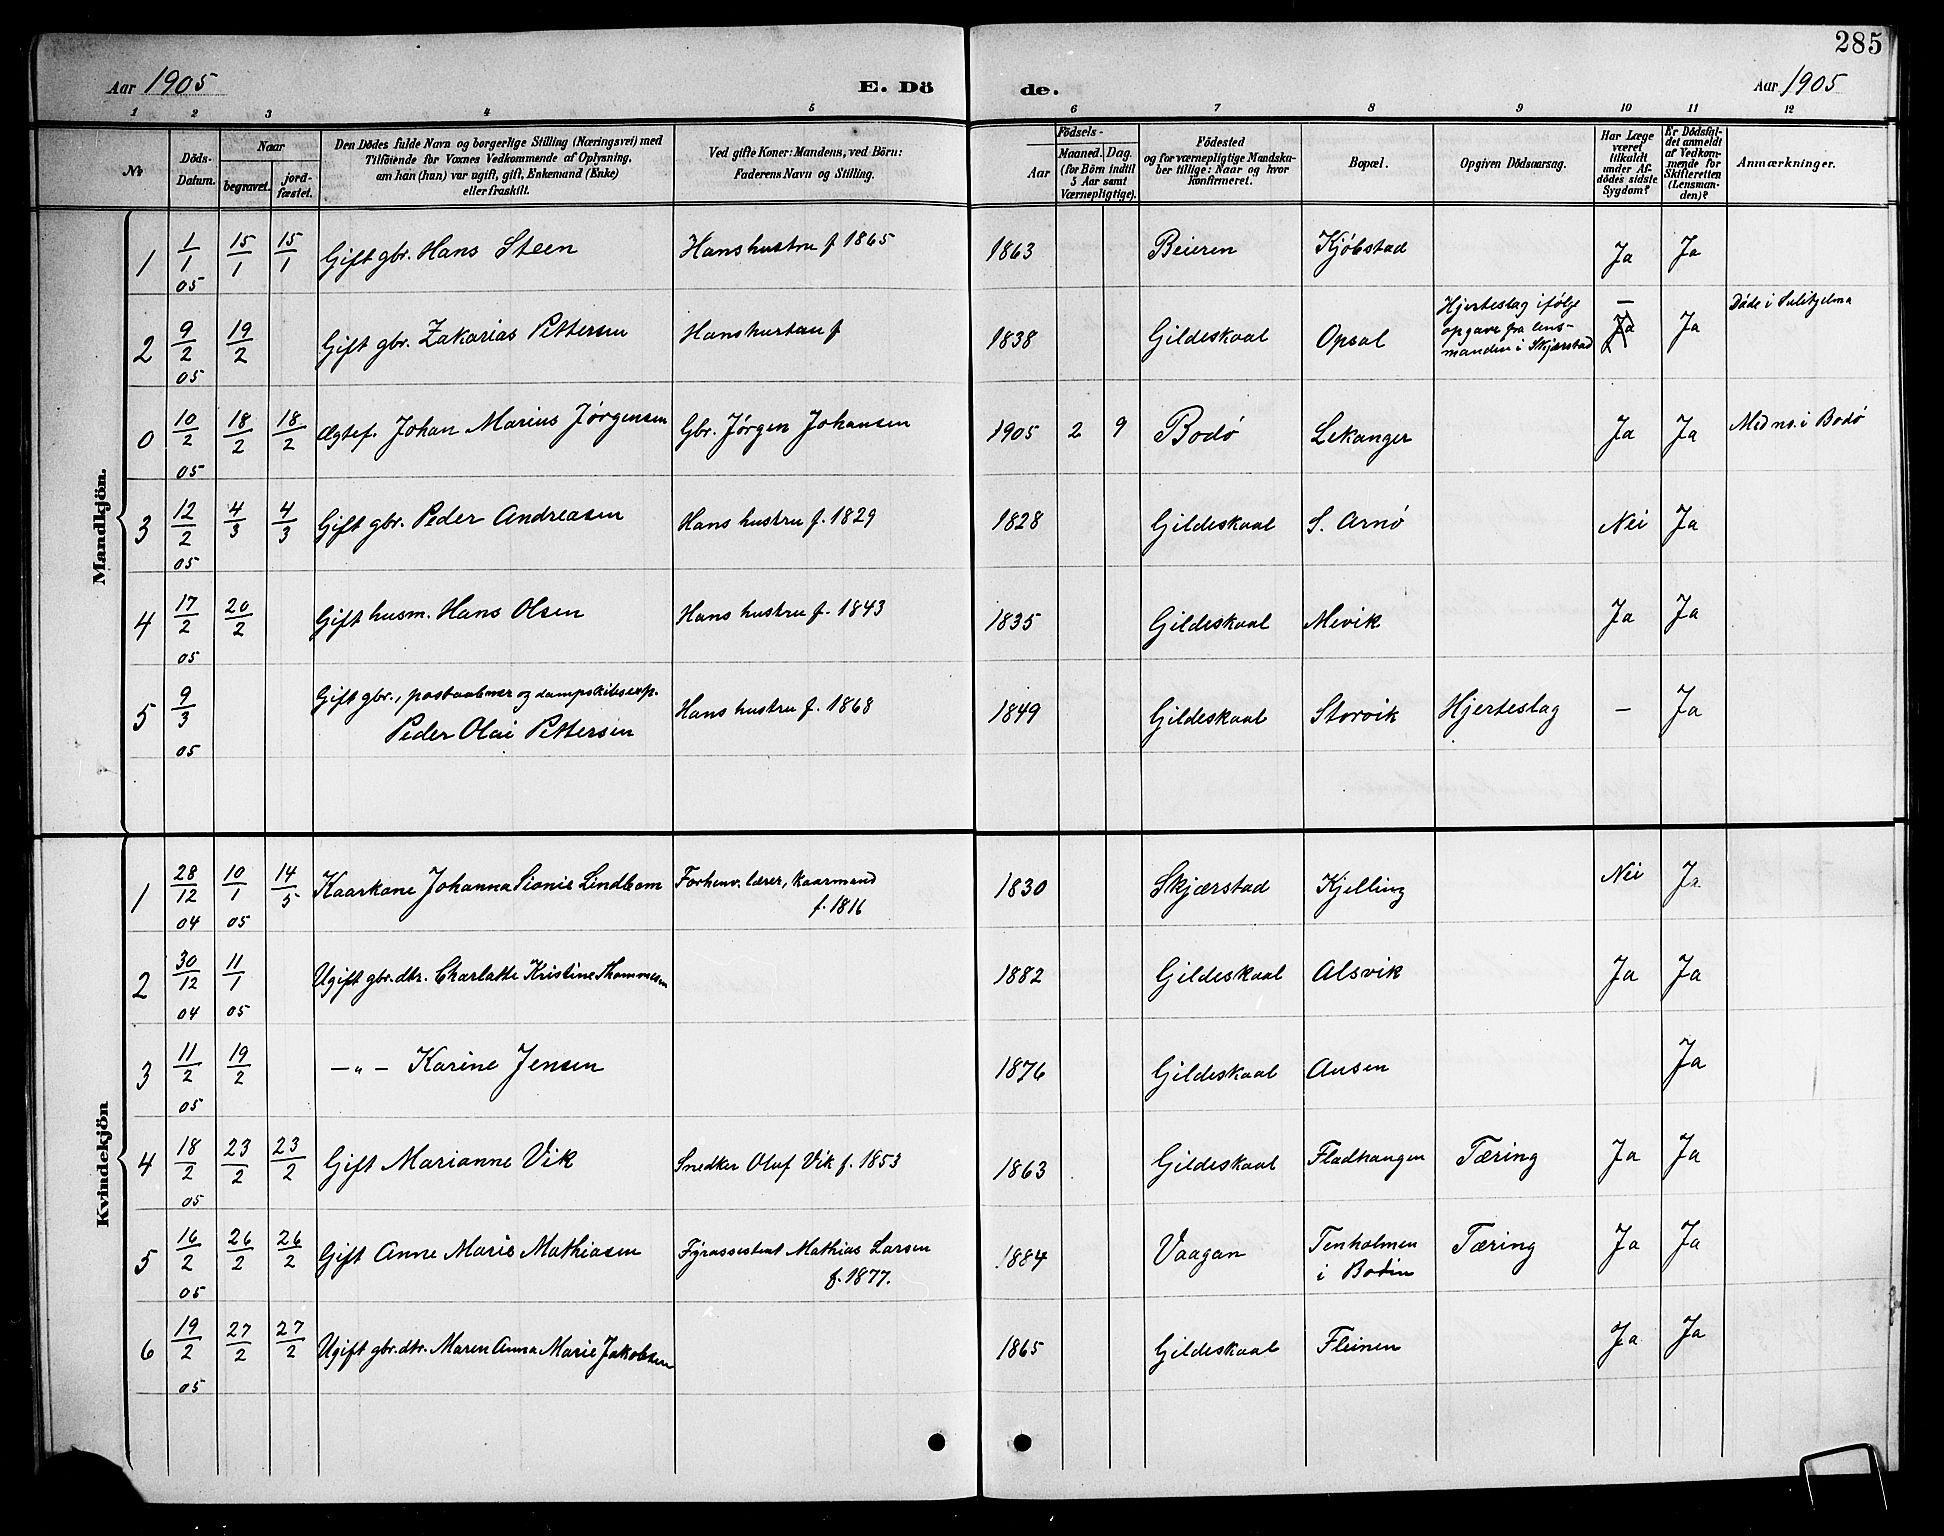 285
Aar 1905 E. Dö de. Aar 1905
1 2 3 4 5 6 7 8 9 10 11 12
№
Döds-Datum.
Naar
begravet.
jordfæstet.
Den Dödes fulde Navn og borgerlige Stilling (Næringsvei) med
Tilföiende for Voxnes Vedkommende af Oplysning,
om han (hun) var ugift, gift, Enkemand (Enke)
eller fraskilt.
Ved gifte Koner: Mandens, ved Börn:
Faderens Navn og Stilling.
Födsels-
Aar
Maaned. Dag.
(for Börn indtil
5 Aar samt
Værnepligtige).
Födested
og for værnepligtige Mandska-
ber tillige: Naar og hvor
konfirmeret.
Bopæl.
Opgiven Dödsaarsag.
Har Læge
været
tilkaldt
under Af-
dödes sidste
Sygdom?
Er Dödsfal-
det anmeldt
af Vedkom-
mende for
Skifteretten
(Lensman-
den)?
Anmærkninger.
Mandkjön.
1 1/1 05 15/1 15/1 Gift gbr. Hans Steen Hans hustru f 1865 1863 Beieren Kjøbstad Ja Ja
2 9/2 05 19/2 Gift gbr. Zakarias Pettersen Hans hustru f 1838 Gildeskaal Opsal Hjerteslag ifølge
opgave fra lens-
manden i Skjærstad — Ja Ja Døde i Sulitjelma
0 10/2 05 18/2 18/2 Ægtef. Johan Marius Jørgensen Gbr. Jørgen Johansen 1905 2 9 Bodø Lekanger Ja Ja Med no. i Bodø
3 12/2 05 4/3 4/3 Gift gbr. Peder Andreasen Hans hustru f. 1829 1828 Gildeskaal S. Arnø Nei Ja
4 17/2 05 20/2 Gift husm. Hans Olsen Hans hustru f. 1843 1835 Gildeskaal Mevik Ja Ja
5 9/3 05 Gift gbr., postaabner og dampskibsexp.
Peder Olai Pettersen Hans hustru f. 1868 1849 Gildeskaal Storvik Hjerteslag — Ja
Kvindekjön
1 28/12 04 10/1 05 14/5 Kaarkone Johanna Sionie Lindbom Forhenv. lærer, kaarmand
f. 1816 1830 Skjærstad Kjelling Nei Ja
2 30/12 04 11/1 05 Ugift gbr. dtr. Charlotte Kristine Thommesen 1882 Gildeskaal Alsvik Ja Ja
3 11/2 05 19/2 — „ — Karine Jensen 1876 Gildeskaal Ausen Ja
4 18/2 05 23/2 23/2 Gift Marianne Vik Snedker Oluf Vik f. 1853 1863 Gildeskaal Fladhaugen Tæring Ja Ja
5 16/2 05 26/2 26/2 Gift Anne Marie Mathiasen Fyrassistent Mathias Larsen
f. 1877. 1884 Vaagan Tenholmen
i Bodin Tæring Ja Ja
6 19/2 05 27/2 27/2 Ugift gbr. dtr. Maren Anna Marie Jakobsen 1865 Gildeskaal Fleinen Ja Ja